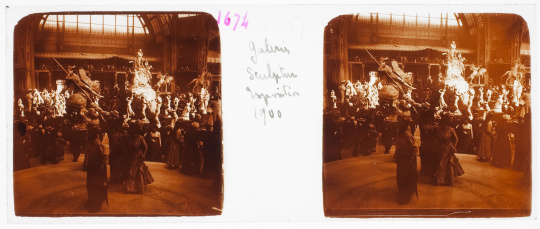 1674
Galerie
Sculpture
Exposition
1900